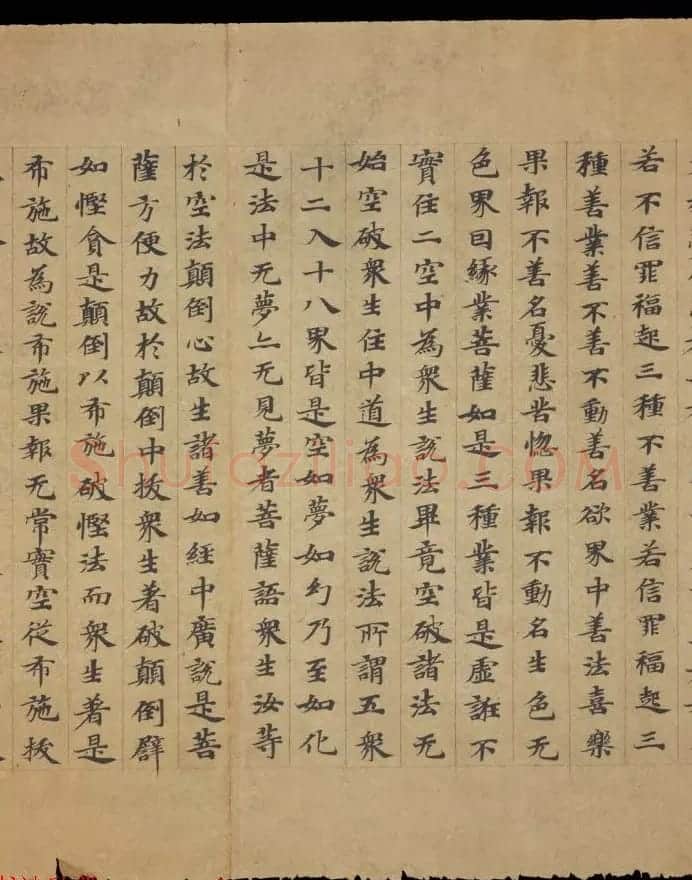 若不信罪福起三種不善業若信罪福起三
種善業善不善不動善名欲界中善法喜樂
果報不善名憂悲苦惱果報不動名生色无
色界因緣業菩薩知是三種業皆是虛誑不
實住二空中為衆生說法畢竟空破諸法无
始空破衆生住中道為衆生說法所謂五衆
十二入十八界皆是空如夢如幻乃至如化
是法中无夢亦无見夢者菩薩語衆生汝等
於空法顛倒心故生諸善如經中廣說是菩
薩方便力故於顛倒中拔衆生著破顛倒譬
如慳貪是顛倒以布施破慳法而衆生著是
布施故為說布施果報无常實空從布施拔
Shufaziliao.COM